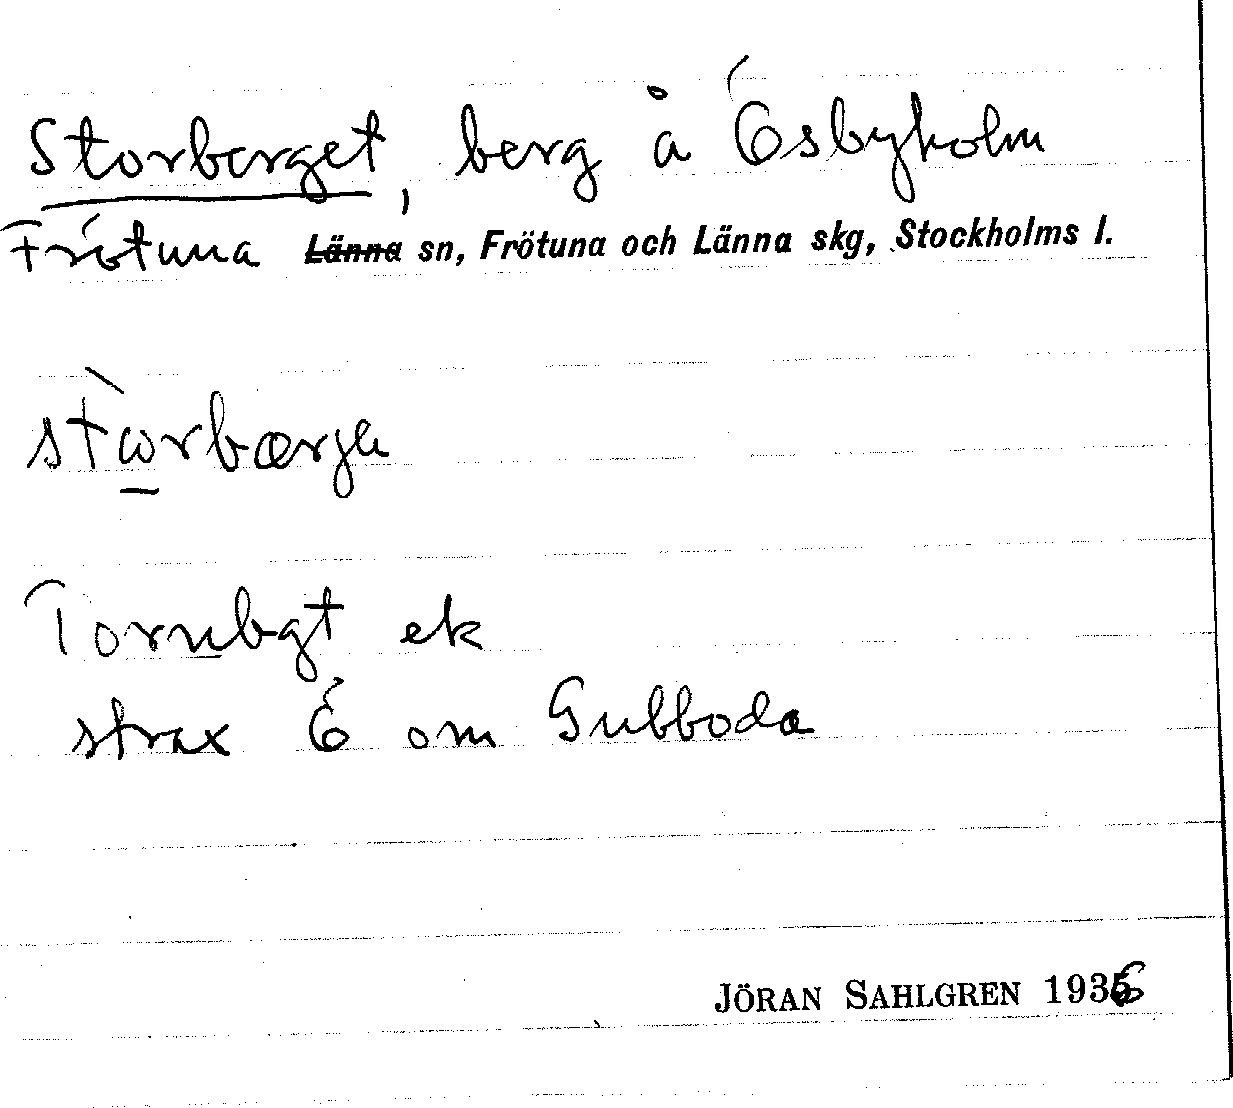 Storberget, berg å Ösbyholm
Frötuna ~~Länna~~ sn, Frötuna och Länna skg, Stockholms l.
stωrbærja
Tornbgt ek
strax Ö om Gubboda
JÖRAN SAHLGREN 1936